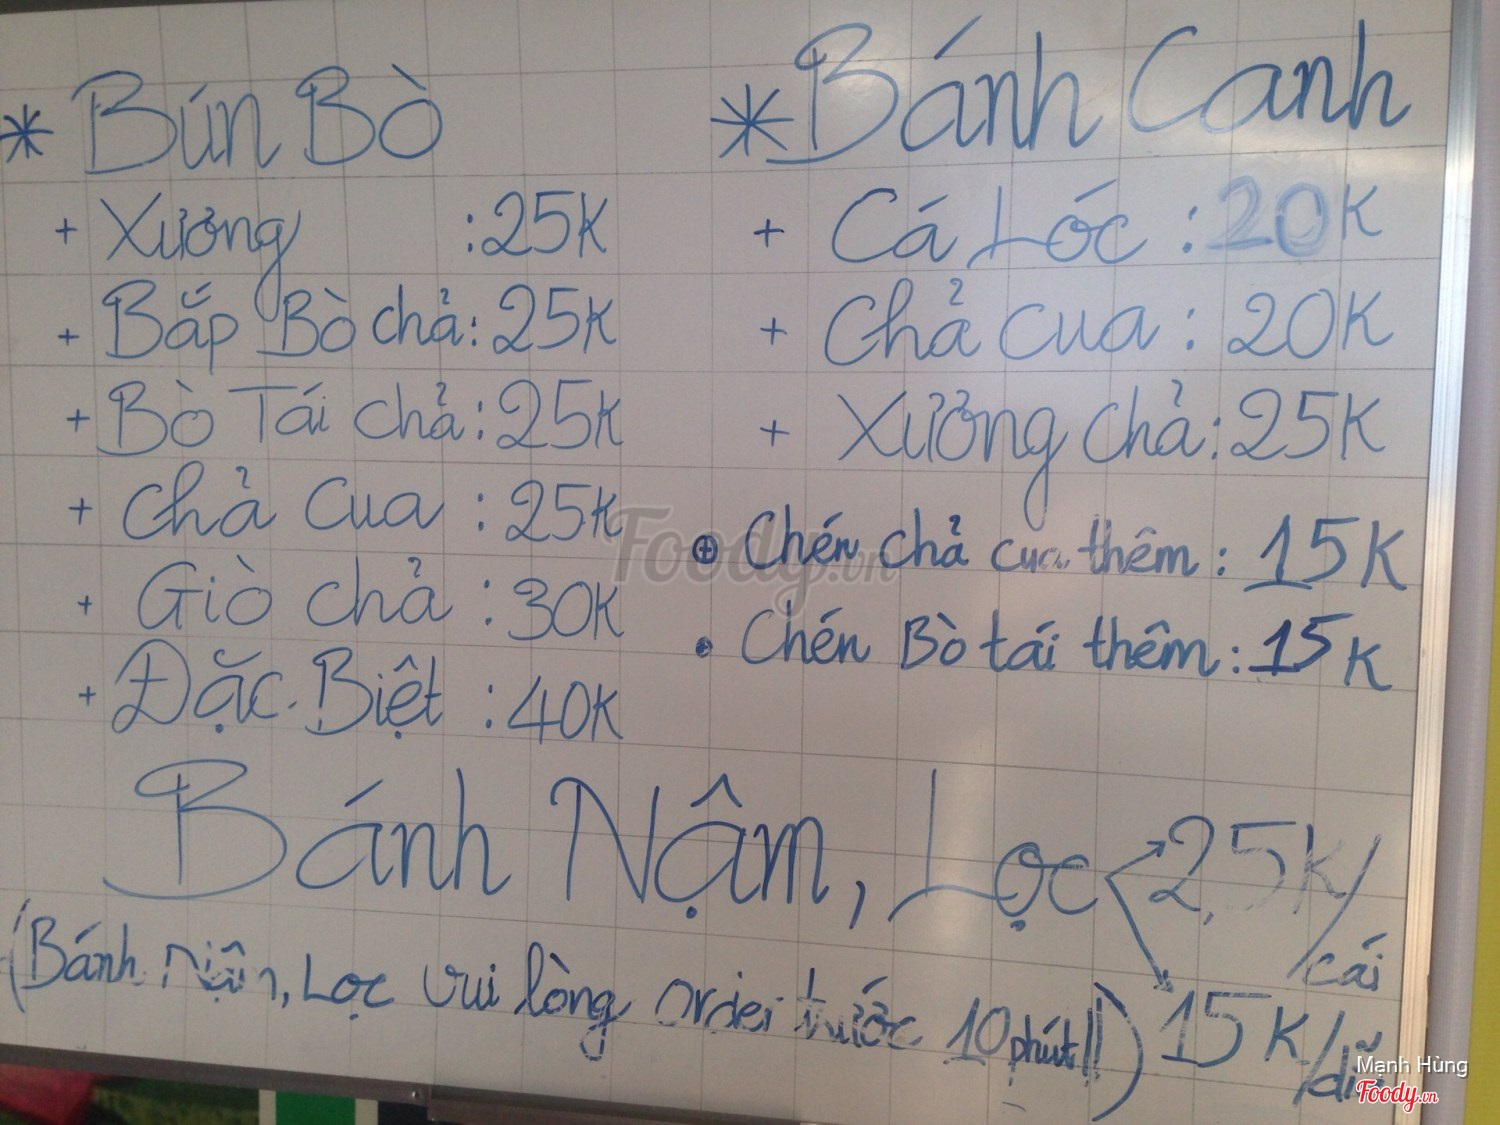 * Bún Bò
+ Xương : 25K
+ Bắp Bò chả : 25K
+ Bò Tái chả : 25K
+ Chả cua : 25K
+ Giò chả : 30K
+ Đặc Biệt : 40K
* Bánh Canh
+ Cá Lóc : 20K
+ Chả cua : 20K
+ Xương chả : 25K
+ Chén chả cua thêm : 15K
• Chén Bò tái thêm : 15K
Bánh Nậm, Lọc 2,5K/cái
15K/dĩa
(Bánh Nậm, Lọc vui lòng order trước 10 phút!!)
Foody.vn
Mạnh Hùng
Foody.vn